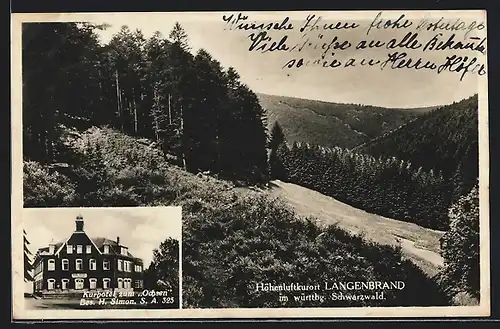 Wünsche Ihnen frohe Ostertage
Viele Grüße an alle Bekannte
sowie an Herrn Höfer
Höhenluftkurort LANGENBRAND
im württbg. Schwarzwald.
Kurhotel zum „Ochsen"
Bes. H. Simon, S. A. 325